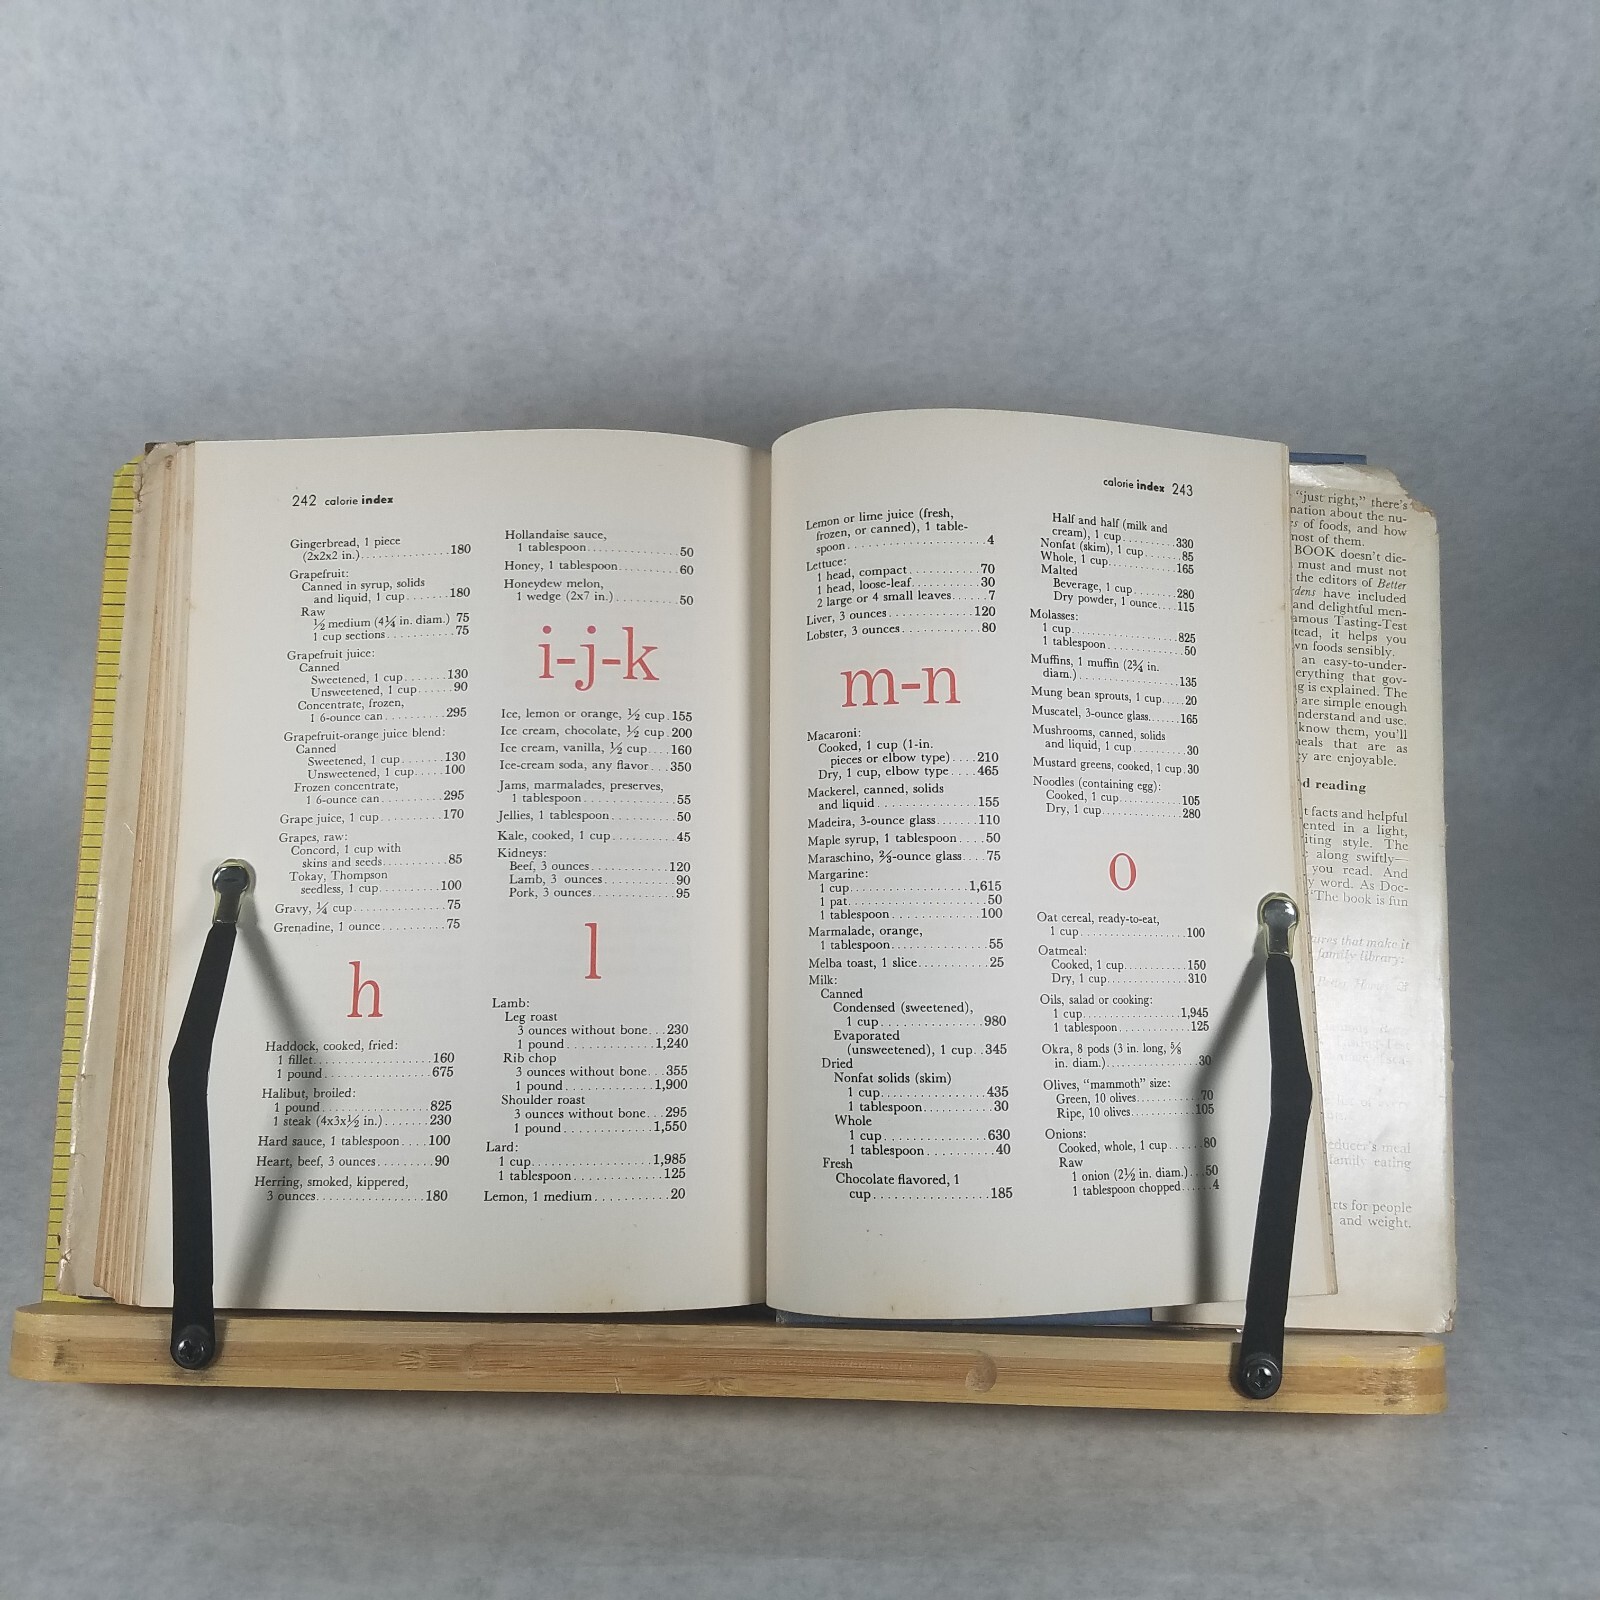 242 calorie index
Gingerbread, 1 piece
(2x2x2 in.)..............180
Grapefruit:
Canned in syrup, solids
and liquid, 1 cup.......180
Raw
½ medium (4¼ in. diam.) 75
1 cup sections..........75
Grapefruit juice:
Canned
Sweetened, 1 cup.......130
Unsweetened, 1 cup......90
Concentrate, frozen,
1 6-ounce can..........295
Grapefruit-orange juice blend:
Canned
Sweetened, 1 cup.......130
Unsweetened, 1 cup.....100
Frozen concentrate,
1 6-ounce can..........295
Grape juice, 1 cup.........170
Grapes, raw:
Concord, 1 cup with
skins and seeds..........85
Tokay, Thompson
seedless, 1 cup.........100
Gravy, ¼ cup..............75
Grenadine, 1 ounce..........75
h
Haddock, cooked, fried:
1 fillet..................160
1 pound................675
Halibut, broiled:
1 pound................825
1 steak (4x3x½ in.).......230
Hard sauce, 1 tablespoon....100
Heart, beef, 3 ounces........90
Herring, smoked, kippered,
3 ounces................180
Hollandaise sauce,
1 tablespoon..............50
Honey, 1 tablespoon.........60
Honeydew melon,
1 wedge (2x7 in.)..........50
i-j-k
Ice, lemon or orange, ½ cup.155
Ice cream, chocolate, ½ cup.200
Ice cream, vanilla, ½ cup....160
Ice-cream soda, any flavor...350
Jams, marmalades, preserves,
1 tablespoon..............55
Jellies, 1 tablespoon..........50
Kale, cooked, 1 cup..........45
Kidneys:
Beef, 3 ounces............120
Lamb, 3 ounces............90
Pork, 3 ounces............95
l
Lamb:
Leg roast
3 ounces without bone...230
1 pound..............1,240
Rib chop
3 ounces without bone...355
1 pound..............1,900
Shoulder roast
3 ounces without bone...295
1 pound..............1,550
Lard:
1 cup..................1,985
1 tablespoon.............125
Lemon, 1 medium...........20
calorie index 243
Lemon or lime juice (fresh,
frozen, or canned), 1 table-
spoon....................4
Lettuce:
1 head, compact..........70
1 head, loose-leaf..........30
2 large or 4 small leaves......7
Liver, 3 ounces.............120
Lobster, 3 ounces............80
m-n
Macaroni:
Cooked, 1 cup (1-in.
pieces or elbow type)....210
Dry, 1 cup, elbow type....465
Mackerel, canned, solids
and liquid...............155
Madeira, 3-ounce glass......110
Maple syrup, 1 tablespoon....50
Maraschino, ⅔-ounce glass....75
Margarine:
1 cup..................1,615
1 pat....................50
1 tablespoon.............100
Marmalade, orange,
1 tablespoon..............55
Melba toast, 1 slice..........25
Milk:
Canned
Condensed (sweetened),
1 cup................980
Evaporated
(unsweetened), 1 cup..345
Dried
Nonfat solids (skim)
1 cup................435
1 tablespoon...........30
Whole
1 cup................630
1 tablespoon...........40
Fresh
Chocolate flavored, 1
cup..................185
Half and half (milk and
cream), 1 cup..........330
Nonfat (skim), 1 cup.......85
Whole, 1 cup.............165
Malted
Beverage, 1 cup........280
Dry powder, 1 ounce....115
Molasses:
1 cup...................825
1 tablespoon..............50
Muffins, 1 muffin (2¾ in.
diam.)..................135
Mung bean sprouts, 1 cup.....20
Muscatel, 3-ounce glass......165
Mushrooms, canned, solids
and liquid, 1 cup.........30
Mustard greens, cooked, 1 cup.30
Noodles (containing egg):
Cooked, 1 cup............105
Dry, 1 cup...............280
o
Oat cereal, ready-to-eat,
1 cup...................100
Oatmeal:
Cooked, 1 cup............150
Dry, 1 cup...............310
Oils, salad or cooking:
1 cup..................1,945
1 tablespoon.............125
Okra, 8 pods (3 in. long, ⅝
in. diam.)................30
Olives, "mammoth" size:
Green, 10 olives..........70
Ripe, 10 olives...........105
Onions:
Cooked, whole, 1 cup......80
Raw
1 onion (2½ in. diam.)...50
1 tablespoon chopped......4
"just right," there's
nation about the nu-
of foods, and how
most of them.
BOOK doesn't dic-
must and must not
the editors of Better
have included
and delightful men-
amous Tasting-Test
tead, it helps you
wn foods sensibly.
an easy-to-under-
erything that gov-
g is explained. The
are simple enough
nderstand and use.
know them, you'll
eals that are as
ey are enjoyable.
d reading
t facts and helpful
ented in a light,
iting style. The
along swiftly—
you read. And
y word. As Doc-
"The book is fun
ures that make it
family library:
educer's meal
family eating
rts for people
and weight.